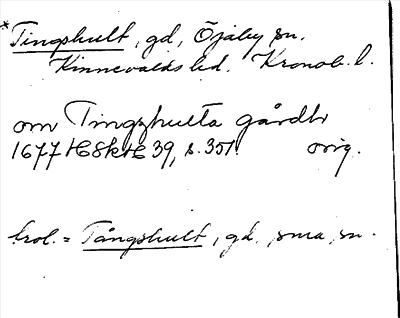 *Tingshult, gd, Öjaby sn.
Kinnevalds hd. Kronob. l.
om Tingzhulta gårdh
1677 HSkH 39, s. 351. orig.
trol. = Tångshult, gd, sma sn.